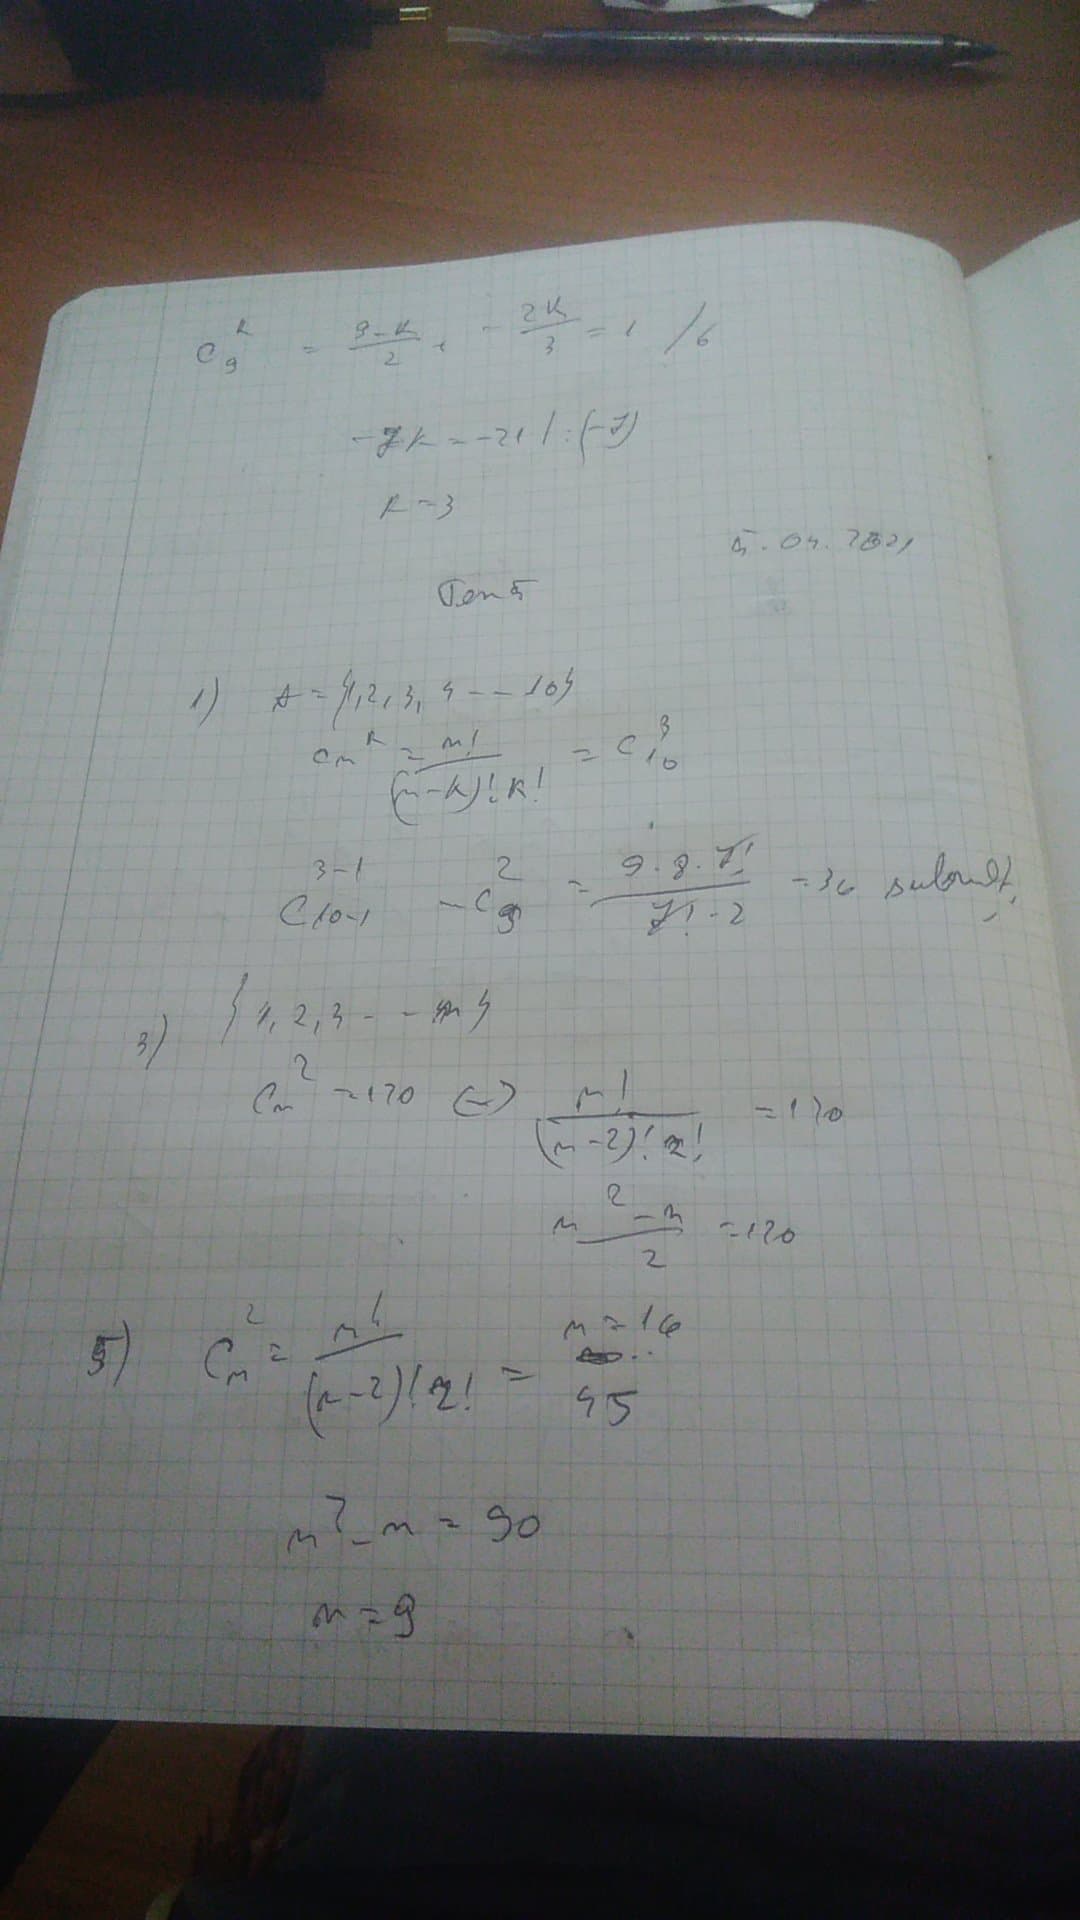 C₉ᵏ = (9-k)/2 · - 2k/3 = 1 /6
-7k = -21 | :(-7)
k = 3
5.04.2021
1) A = {1,2,3,4 -- 10}
Cₙᵏ = n!/((n-k)!·k!) = C₁₀³
C₁₀₋₁³⁻¹ - C₉² = 9·8·7!/(7!·2) = 36 submulț,
3) {1,2,3 - - n}
Cₙ² = 120 (=) n!/((n-2)! 2!) = 120
(n²-n)/2 = 120
n = 16
5) Cₙ² = n!/((n-2)! 2!) = 45
n² - n = 90
n = 9